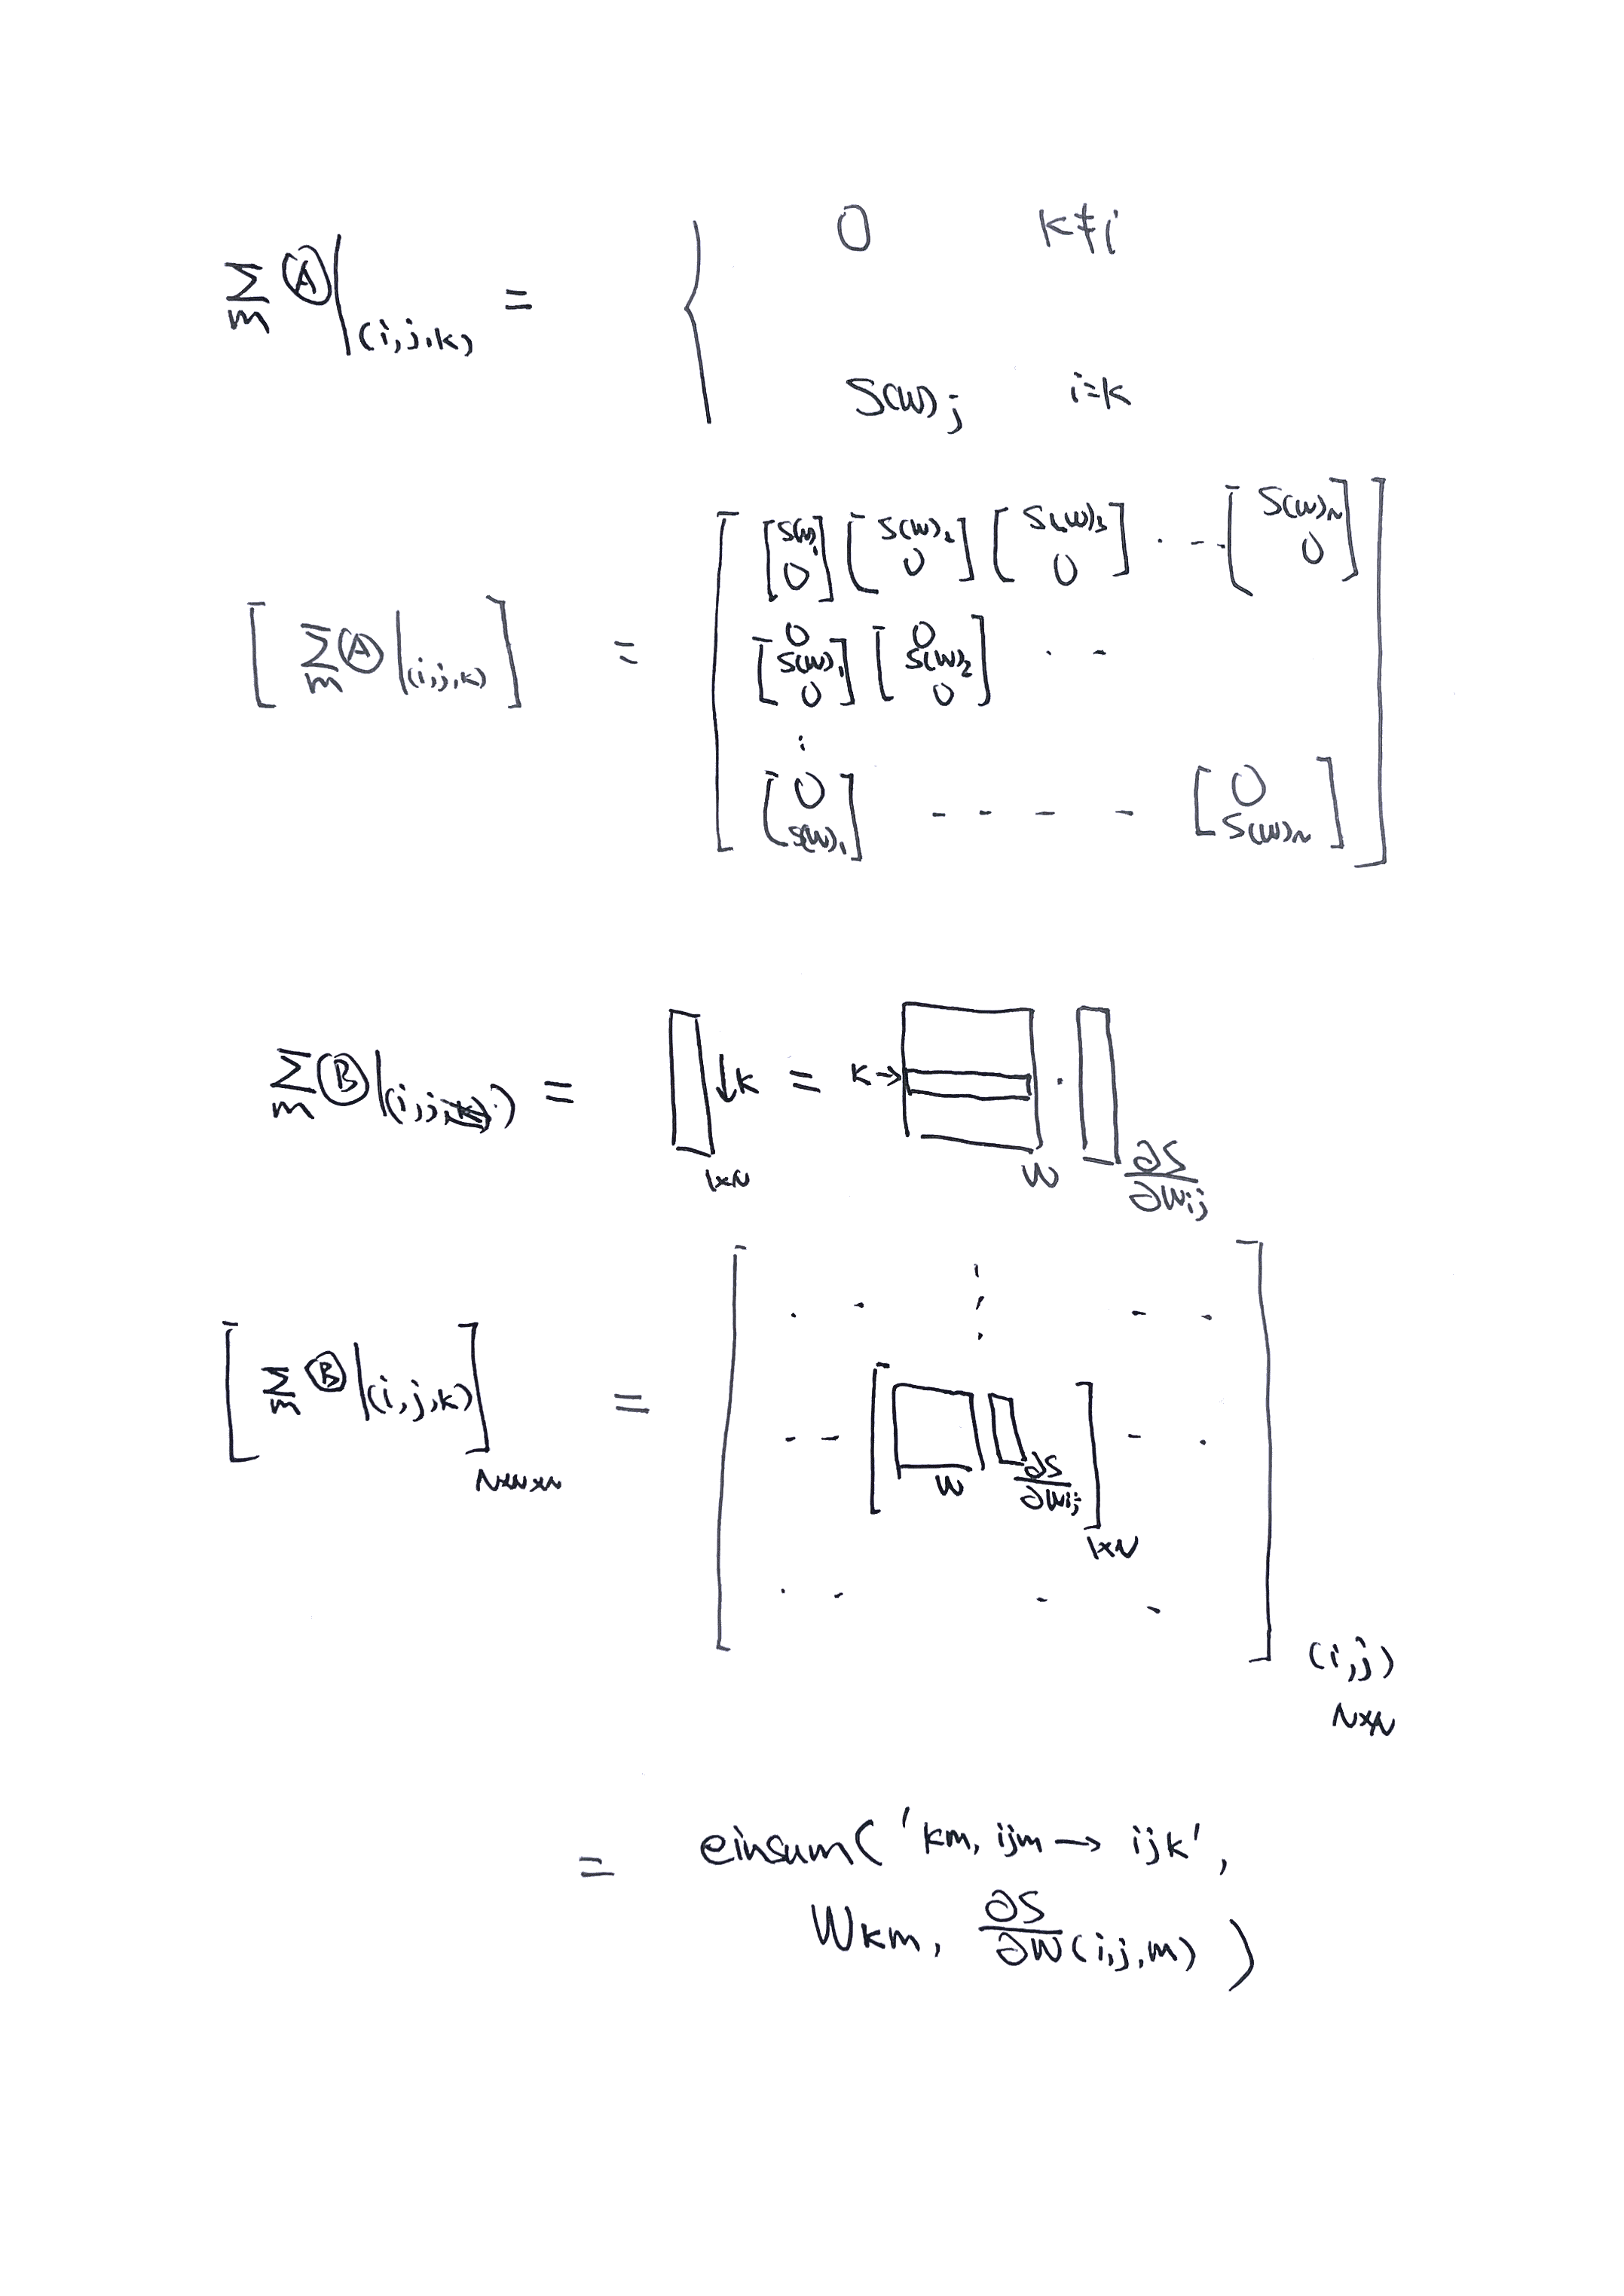 ∑ₘ Ⓐ|(i,j,k) = { 0 k≠i
S(W)ⱼ i=k
[ ∑ₘ Ⓐ|(i,j,k) ] = [ [S(W)₁ 0] [S(W)₂ 0] [S(W)₃ 0] ··· [S(W)N 0]
[0 S(W)₁ 0] [0 S(W)₂ 0] ··
⋮
[0 S(W)₁] ---- [0 S(W)N] ]
∑ₘ Ⓑ|(i,j) = ↓k = k→ · 
1×N W ∂S/∂Wij
[ ∑ₘ Ⓑ|(i,j,k) ] N×N×N = [ [ W ∂S/∂Wij ] 1×N ] (i,j)
N×N
= einsum('km, ijm → ijk',
Wkm, ∂S/∂W(i,j,m) )